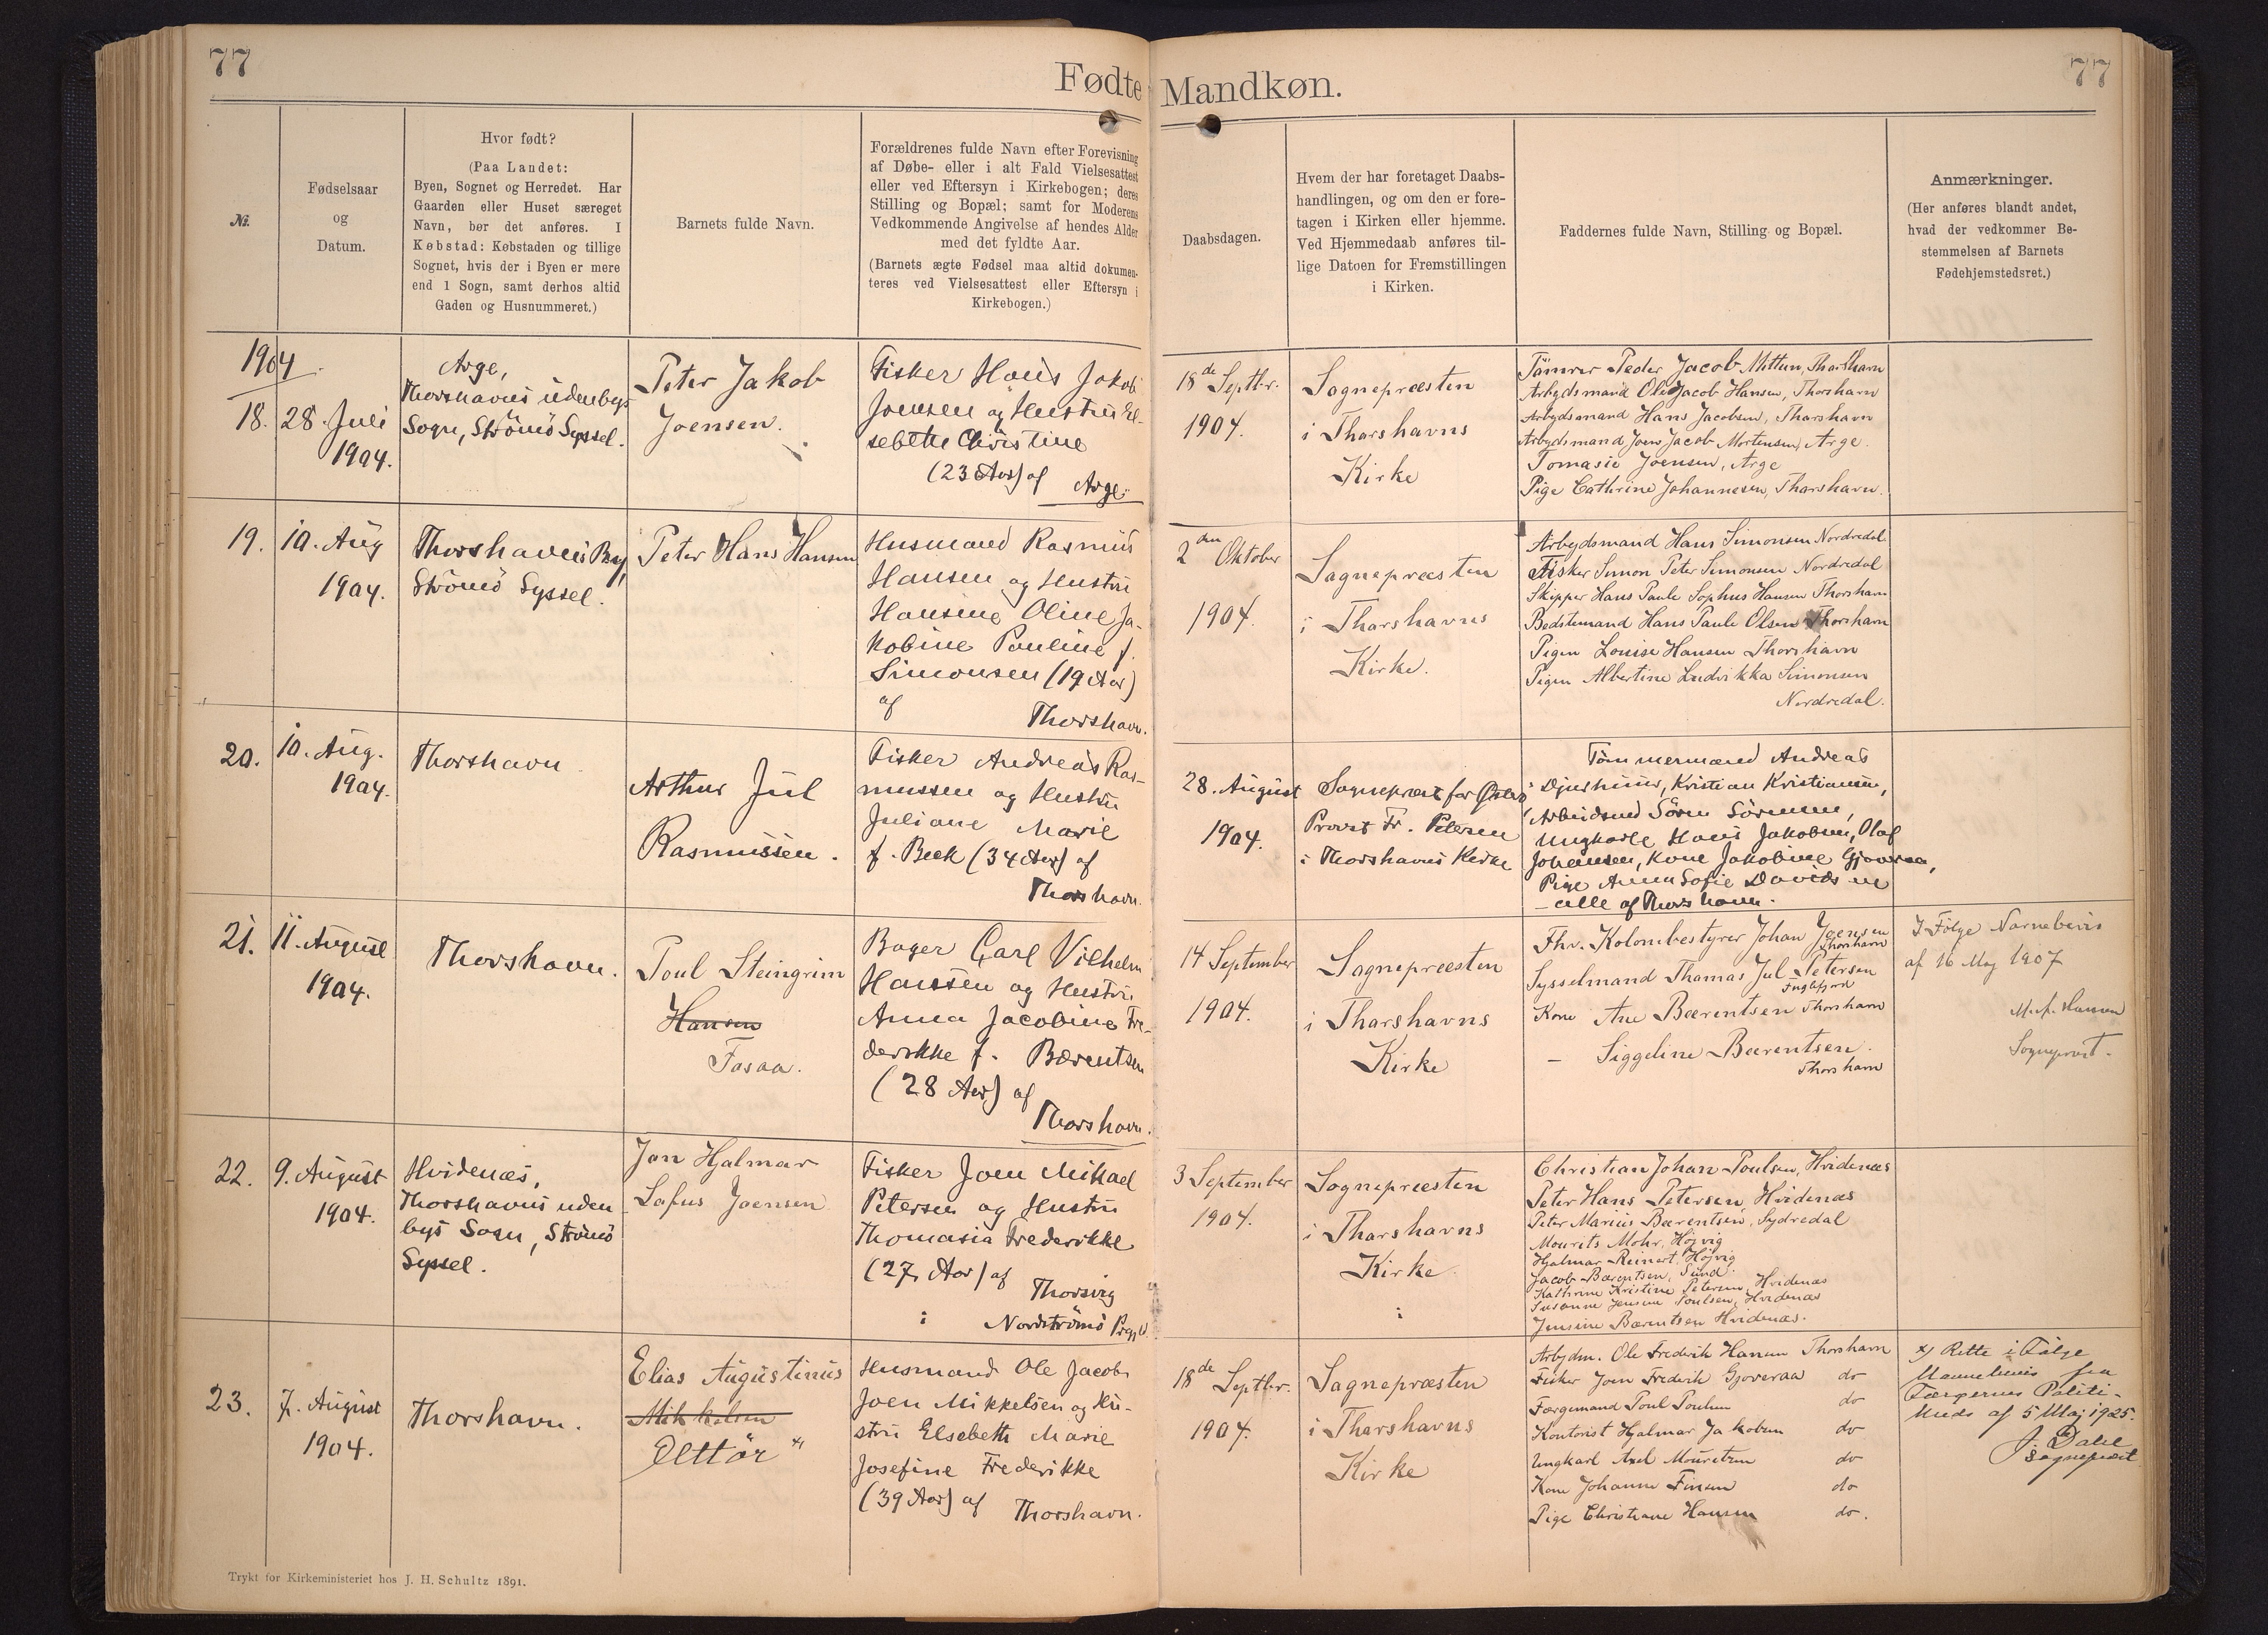 77
Fødte
Mandkøn.
77
Nr.
Fødselsaar
og
Datum.
Hvor født?
(Paa Landet:
Byen, Sognet og Herredet. Har
Gaarden eller Huset særeget
Navn, bør det anføres. I
Købstad: Købstaden og tillige
Sognet, hvis der i Byen er mere
end 1 Sogn, samt derhos altid
Gaden og Husnummeret.)
Barnets fulde Navn.
Forældrenes fulde Navn efter Forevisning
af Døbe- eller i alt Fald Vielsesattest
eller ved Eftersyn i Kirkebogen; deres
Stilling og Bopæl; samt for Moderens
Vedkommende Angivelse af hendes Alder
med det fyldte Aar.
(Barnets ægte Fødsel maa altid dokumen-
teres ved Vielsesattest eller Eftersyn i
Kirkebogen.)
Daabsdagen.
Hvem der har foretaget Daabs-
handlingen, og om den er fore-
tagen i Kirken eller hjemme.
Ved Hjemmedaab anføres til-
lige Datoen for Fremstillingen
i Kirken.
Faddernes fulde Navn, Stilling og Bopæl.
Anmærkninger.
(Her anføres blandt andet,
hvad der vedkommer Be-
stemmelsen af Barnets
Fødehjemstedsret.)
1904
18.
28. Juli
1904.
Arge,
Thorshavns udenbys
Sogn, Strømø Syssel.
Peter Jakob
Joensen.
Fisker Hans Jakob
Joensen og Hustru El-
sebeth Christine
(23 Aar) af
Arge.
18de Septbr.
1904.
Sognepræsten
i Thorshavns
Kirke
Tømrer Peder Jacob Mittun, Thorshavn
Arbejdsmand Ole Jacob Hansen, Thorshavn
Arbejdsmand Hans Jacobsen, Thorshavn
Arbejdsmand Joen Jacob Mortensen, Arge.
Tomasie Joensen, Arge
Pige Cathrine Johannesen, Thorshavn.
19.
10. Aug
1904.
Thorshavns By,
Strømø Syssel.
Peter Hans Hansen
Husmand Rasmus
Hansen og Hustru
Hansine Oline Ja-
kobine Pauline f.
Simonsen (19 Aar)
af
Thorshavn.
2den Oktober
1904.
Sognepræsten
i Thorshavns
Kirke.
Arbejdsmand Hans Simonsen Nordredal
Fisker Simon Peter Simonsen Nordredal
Skipper Hans Paule Sophus Hansen Thorshavn
Bedstemand Hans Paule Olsen Thorshavn
Pigen Louise Hansen Thorshavn
Pigen Albertine Ludvikka Simonsen
Nordredal.
20.
10. Aug.
1904.
Thorshavn
Arthur Jul
Rasmussen.
Fisker Andreas Ras-
mussen og Hustru
Juliane Marie
f. Beck (34 Aar) af
Thorshavn.
28. August
1904.
Sognepræst for Østerø
Provst Fr. Petersen
i Thorshavns Kirke
Tømmermand Andreas
Djurhuus, Kristian Kristiansen,
Arbeidsmd Sören Sörensen,
Ungkarle Hans Jakobsen, Olaf
Johannesen, Kone Jakobine Gjoveraa,
Pige Anna Sofie Davidsen
– alle af Thorshavn.
21.
11. August
1904.
Thorshavn.
Poul Steingrim
Hansen
Fosaa.
Bager Carl Vilhelm
Hansen og Hustru
Anna Jacobine Fre-
derikke f. Bærentsen
(28 Aar) af
Thorshavn.
14 September
1904.
Sognepræsten
i Thorshavns
Kirke
Fhv. Kolonibestyrer Johan Joensen
Thorshavn
Sysselmand Thomas Jul Petersen
Fuglefjord
Kone Ane Bærentsen Thorshavn
– Siggeline Bærentsen.
Thorshavn
I Følge Navnebevis
af 16 Maj 1907
Hansen
Sognepræst.
22.
9. August
1904.
Hvidenæs,
Thorshavns uden
bys Sogn, Strømø
Syssel.
Jon Hjalmar
Lofus Joensen
Fisker Joen Mikael
Petersen og Hustru
Thomasia Frederikke
(27 Aar) af
Thorsvig
i Nordstrømø Præggd.
3 September
1904.
Sognepræsten
i Thorshavns
Kirke.
Christian Johan Poulsen, Hvidenæs
Peter Hans Petersen, Hvidenæs
Peter Marius Bærentsen, Sydredal
Mourits Mohr, Højvig
Hjalmar Reinert, Højvig
Jacob Bærentsen, Sund.
Kathrine Kristine Petersen, Hvidenæs
Susanne Jensine Poulsen, Hvidenæs
Jensine Bærentsen Hvidenæs.
23.
7. August
1904.
Thorshavn.
Elias Augustinus
Mikkelsen
Elttør x)
Husmand Ole Jacob
Joen Mikkelsen og Hu-
stru Elsebeth Marie
Josefine Frederikke
(39 Aar) af
Thorshavn.
18de Septbr.
1904.
Sognepræsten
i Thorshavns
Kirke
Arbejdm. Ole Frederik Hansen Thorshavn
Fisker Joen Frederik Gjoveraa do
Færgemand Poul Poulsen do
Kontorist Hjalmar Jakobsen do
Ungkarl Axel Mouritsen do
Kone Johanne Finsen do
Pige Christiane Hansen do.
x) Rette i Følge
Navnebevis fra
Færøernes Politi-
meds af 5 Maj 1925.
J. Dahl
Sognepræst
Trykt for Kirkeministeriet hos J. H. Schultz 1891.